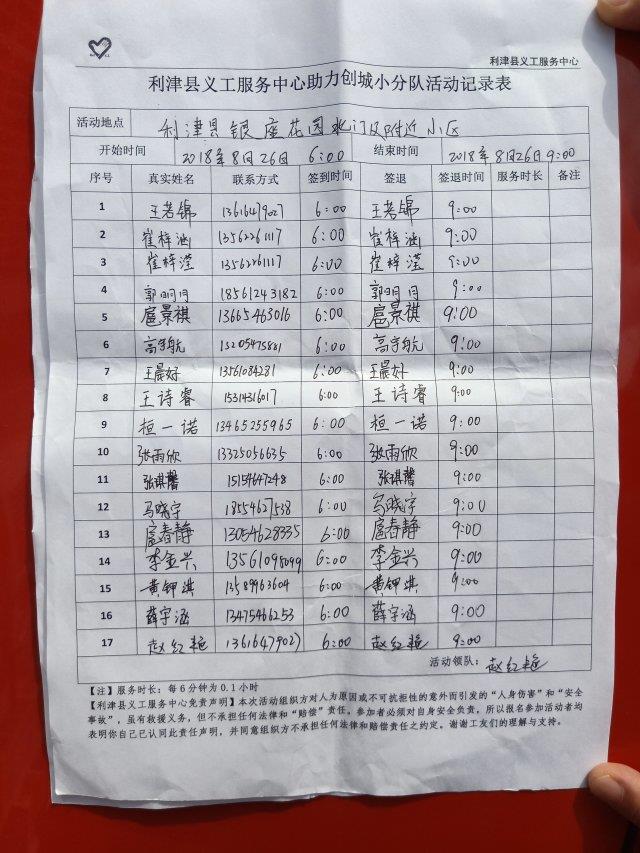 利津县义工服务中心
利津县义工服务中心助力创城小分队活动记录表
活动地点 利津县银座花园北门及附近小区
开始时间 2018年8月26日 6:00 结束时间 2018年8月26日 9:00
序号 真实姓名 联系方式 签到时间 签退 签退时间 服务时长 备注
1 王若锦 13616479027 6:00 王若锦 9:00
2 崔梓涵 13562261117 6:00 崔梓涵 9:00
3 崔梓滢 13562261117 6:00 崔梓滢 9:00
4 郭明月 18561243182 6:00 郭明月 9:00
5 扈景祺 13665463016 6:00 扈景祺 9:00
6 高宇航 13205475881 6:00 高宇航 9:00
7 王晨好 13761084281 6:00 王晨好 9:00
8 王诗睿 15314316017 6:00 王诗睿 9:00
9 桓一诺 13465255965 6:00 桓一诺 9:00
10 张雨欣 13325056635 6:00 张雨欣 9:00
11 张琪馨 15154647248 6:00 张琪馨 9:00
12 马晓宇 18554627538 6:00 马晓宇 9:00
13 扈春静 13054628335 6:00 扈春静 9:00
14 李金兴 6:00 李金兴 9:00
15 黄钾淇 13589963604 6:00 黄钾淇 9:00
16 薛宇涵 13475466253 6:00 薛宇涵 9:00
17 赵红艳 13616479027 6:00 赵红艳 9:00
活动领队: 赵红艳
【注】服务时长:每6分钟为0.1小时
【利津县义工服务中心免责声明】本次活动组织方对人为原因或不可抗拒性的意外而引发的“人身伤害”和“安全
事故”,虽有救援义务,但不承担任何法律和“赔偿”责任。参加者必须对自身安全负责,所以报名参加活动者均
表明你自己已认同此责任声明,并同意组织方不承担任何法律和赔偿责任之约定。谢谢工友们的理解与支持。